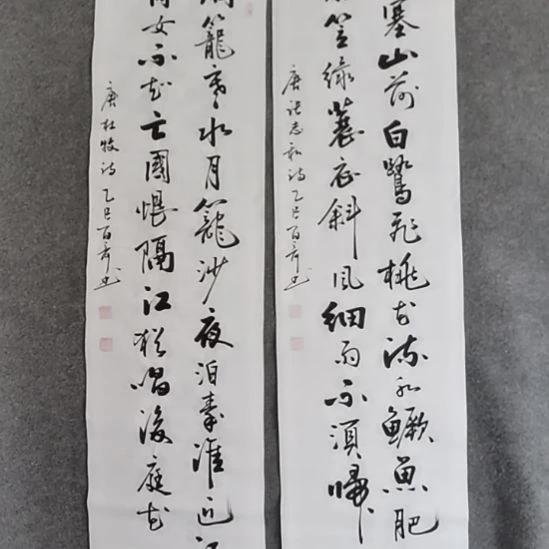 塞山前白鷺飛桃花流水鱖魚肥
笠綠蓑衣斜風細雨不須歸
唐張志和詩乙巳百奇书
籠寒水月籠沙夜泊秦淮近
女不知亡國恨隔江猶唱後庭花
唐杜牧詩乙巳百奇书